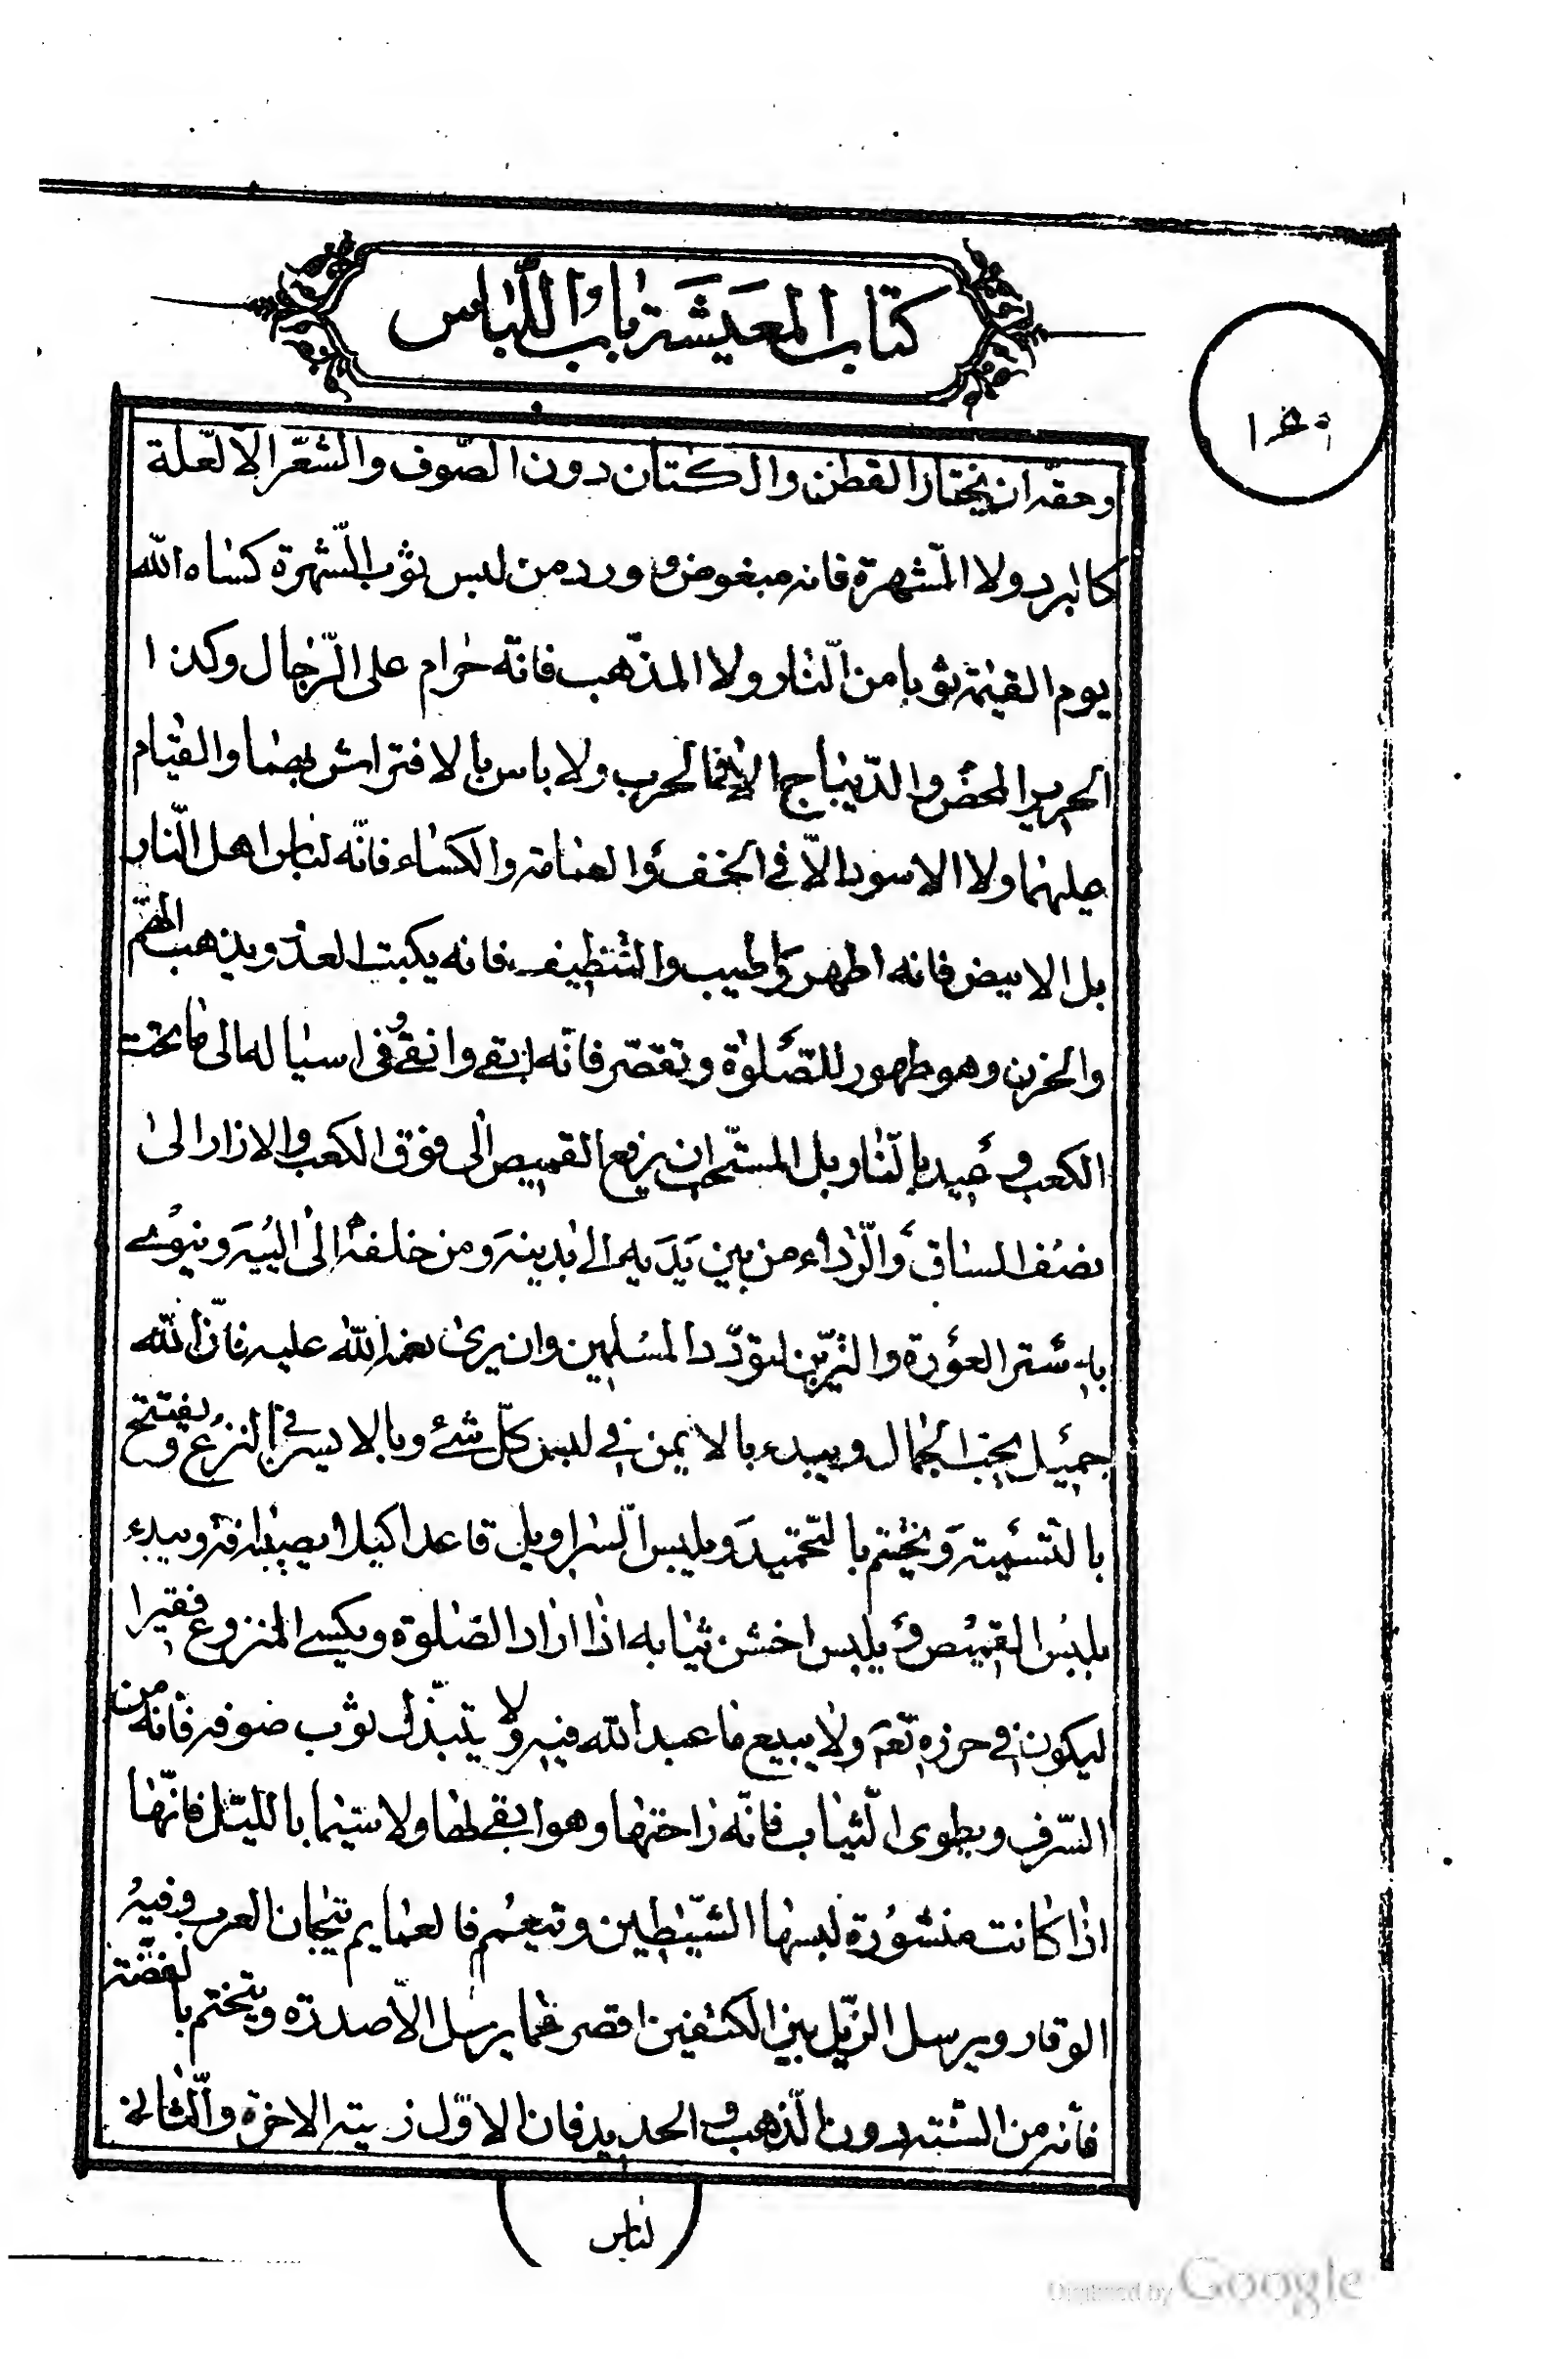 كتاب المعيشة باب اللباس
وحقه ان يختار القطن والكتان دون الصّوف والشّعر الا لعلة
كالبرد ولا الشهرة فانه مبغوض و ورد من لبس ثوب الشهرة كساه الله
يوم القيمة ثوبا من النّار ولا المذهب فانّه حرام على الرّجال وكذا
الحرير المحض والدّيباج الا فى الحرب ولا باس بالافتراش بهما والقيام
عليهما ولا الاسود الّا في الخف والعمامة والكساء فانّه لباس اهل النّار
بل الابيض فانه اطهر واطيب والتنظيف فانه يكبت العدو ويذهب الهمّ
والحزن وهو طهور للصّلوة وتقصر فانّه ابقى وانقى وفى اسباله الى ما تحت
الكعب وعيد بالنّار بل المستحب ان يرفع القميص الى فوق الكعب والازار الى
نصف الساق والرّداء من بين يديه الى ثدييه ومن خلفه الى اليیه وينوى
به ستر العورة والتزيّن لتودّد المسلمين وان يرى نعمة الله عليه فانّ الله
جميل يحبّ الجمال ويبدء بالايمن في لبس كلّ شئ وبالايسر في النزع ويفتتح
بالتسمية ويختم بالتّحميد ويلبس السّراويل قاعدا كيلا يصيبه افة ويبدء
بلبس القميص ويلبس اخشن ثيابه اذا اراد الصّلوة ويكسى المنزوع فقيرا
ليكون في حرزه تعم ولا يبيع ما عبد الله فيه ولا يتبذّل ثوب صوفه فانه من
السّرف ويطوى الثياب فانّه راحتها وهو ابقى لها ولا سيّما بالليل فانّها
اذا كانت منشورة لبسها الشّيطين وتعمم فالعمايم تيجان العرب وفيه
الوقار ويرسل الذّيل بين الكتفين اقصر مما يرسل الّا صدره ويتختم بالفضّة
فانه من السّنة دون الذّهب والحديد فان الاوّل زينة الاخرة والثّانى
لباس
Digitized by Google